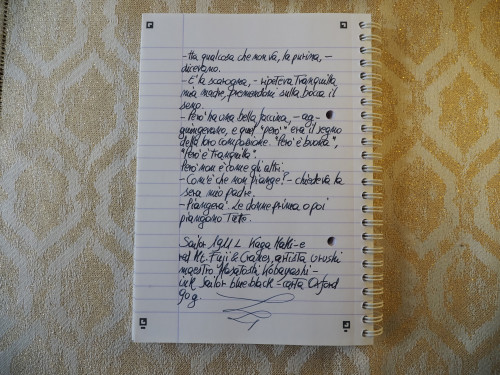 - Ha qualcosa che non va, la purina, -
dicevano.
- E' la scarogna, - ripeteva tranquilla
mia madre, premendomi sulla bocca il
seno.
- Però ha una bella faccina, - ag-
giungevano, e quel "però" era il segno
della loro compassione. "Però è buona",
"Però è tranquilla".
Però non è come gli altri.
- Com'è che non piange? - chiedeva la
sera mio padre.
- Piangerà. Le donne prima o poi
piangono tutte.
Sailor 1911 L Kaga Maki-e
red Mt. Fuji & Cranes, artista urushi
maestro Masatoshi Kobayashi -
ink Sailor blue black - carta Oxford
90 g.